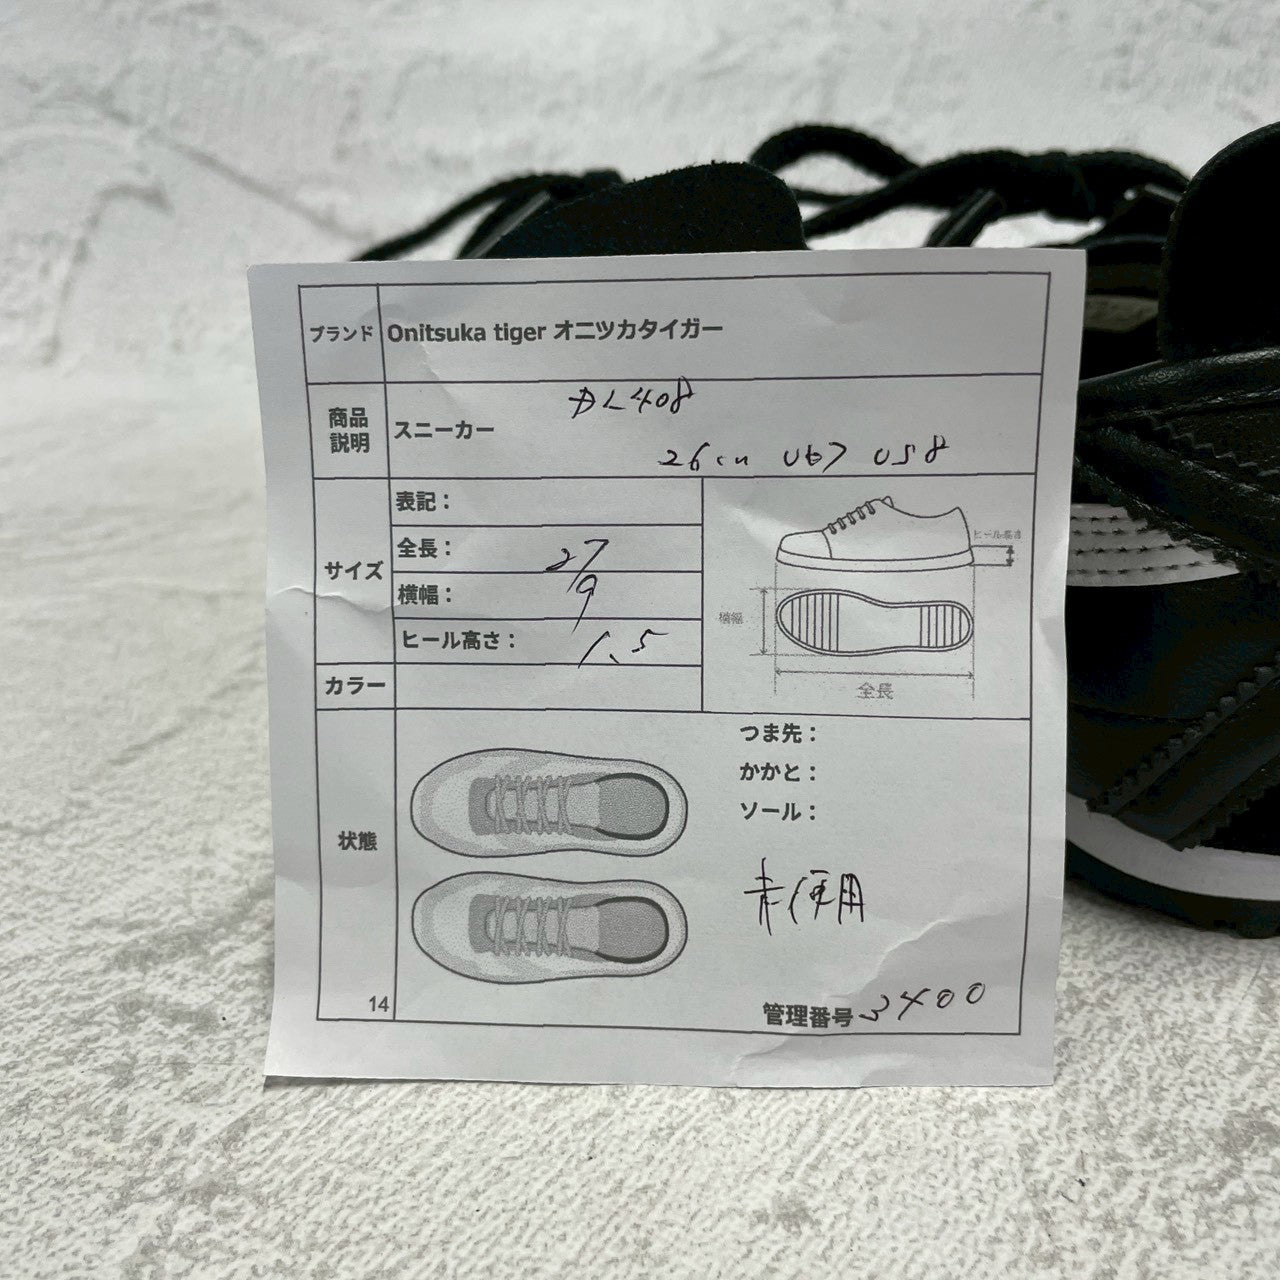 ブランド Onitsuka tiger オニツカタイガー
DL408
商品説明 スニーカー
26cm UK7 US8
サイズ
表記：
全長： 27
横幅： 9
ヒール高さ： 1.5
ヒール高さ
横幅
全長
カラー
状態
つま先：
かかと：
ソール：
未使用
14
管理番号 3400